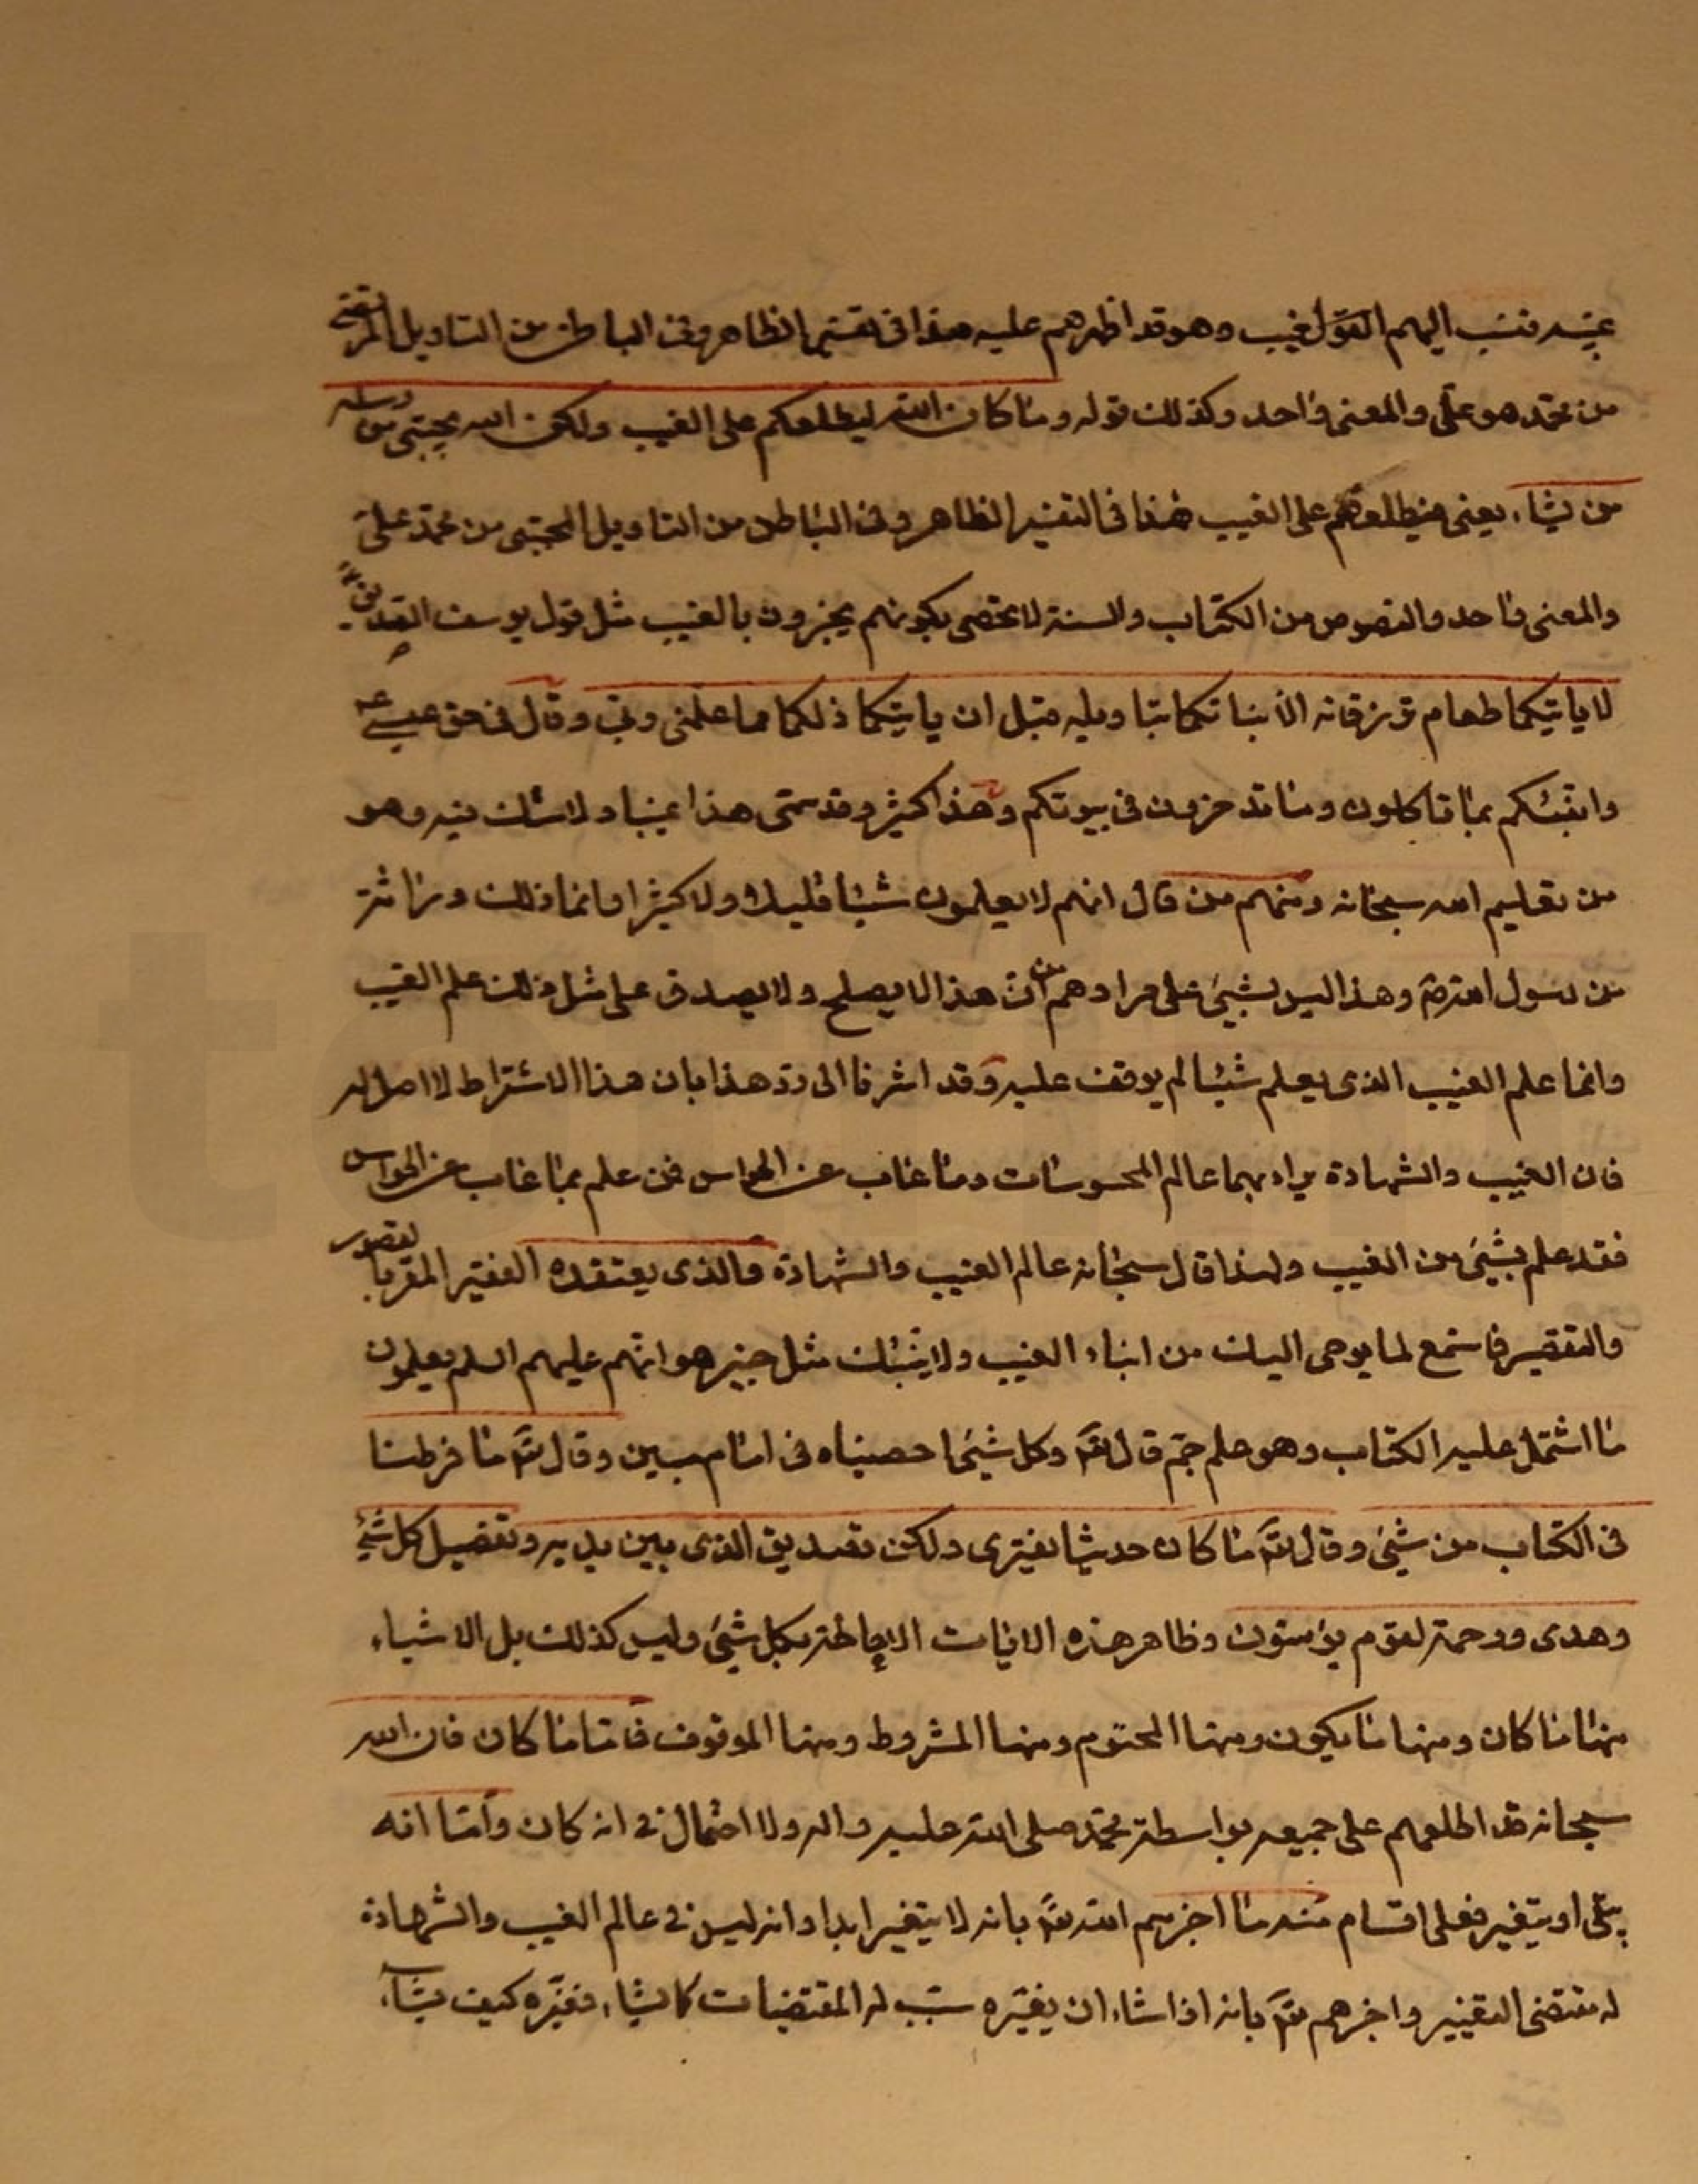 غيبه فنسب اليهم القول لغيب وهو قد اظهرهم عليه هذا في تفسير الظاهر وفي الباطن من التاويل المرتضى
من محمد هو علي والمعنى واحد وكذلك قوله وما كان الله ليطلعكم على الغيب ولكن الله يجتبي من رسله
من يشاء يعني فيطلعهم على الغيب هذا في التفسير الظاهر وفي الباطن من التاويل المجتبى من محمد علي
والمعنى واحد والنصوص من الكتاب والسنة لا تحصى بكونهم يخبرون بالغيب مثل قول يوسف الصديق
لا ياتيكما طعام ترزقانه الا نباتكما بتاويله قبل ان ياتيكما ذلكما مما علمني ربي وقال في حق عيسى ع
وانبئكم بما تاكلون وما تدخرون في بيوتكم وهذا كثير وقد سمى هذا غيبا ولا شك فيه وهو
من تعليم الله سبحانه ومنهم من قال انهم لا يعلمون شيئا قليلا ولا كثيرا وانما ذلك وراثة
من رسول الله ص وهذا ليس بشيئ على مرادهم من ان هذا لا يصلح ولا يصدق على مثل ذلك علم الغيب
وانما علم الغيب الذى يعلم شيئا لم يوقف عليه وقد اشرفا الى رد هذا بان هذا الاشتراط لا اصل له
فان الغيب والشهادة يراد بهما عالم المحسوسات وما غاب عن الحواس فمن علم بما غاب عن الحواس
فقد علم بشيئ من الغيب ولهذا قال سبحانه عالم الغيب والشهادة والذى يعتقده الفقير المقر بالقصور
والتقصير فاستمع لما يوحى اليك من انباء الغيب ولا ينبئك مثل خبير هو انهم عليهم السلم يعلمون
ما اشتمل عليه الكتاب وهو علم جم قال تع وكل شيئ احصيناه في امام مبين وقال تع ما فرطنا
في الكتاب من شيئ وقال تع ما كان حديثا يفترى ولكن تصديق الذى بين يديه وتفصيل كل شيئ
وهدى ورحمة لقوم يؤمنون وظاهر هذه الايات الاحاطة بكل شيئ وليس كذلك بل الاشياء
منها ما كان ومنها ما يكون ومنها المحتوم ومنها المشروط ومنها الموقوف فاما ما كان فان الله
سبحانه قد اطلعهم على جميعه بواسطة محمد صلى الله عليه واله ولا احتمال في انه كان واما انه
يبقى او يتغير فعلى اقسام منه ما اخبرهم الله تع بانه لا يتغير ابدا وانه ليس في عالم الغيب والشهادة
له مقتضى التغيير واخبرهم تع بانه اذا شاء ان يغيره سبب له المقتضيات كما يشاء فغيره كيف يشاء